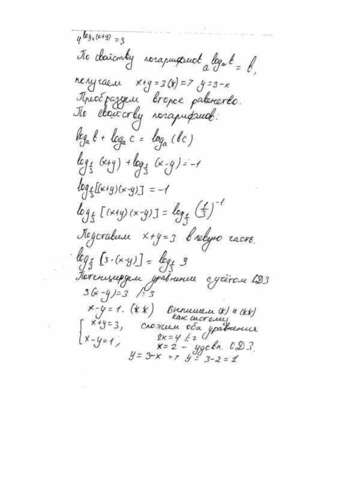 4^log₄(x+y) = 3
По свойству логарифмов a^logₐb = b,
получаем x+y=3(*) => y=3-x
Преобразуем второе равенство.
По свойству логарифмов:
logₐb + logₐc = logₐ(bc)
log_1/3 (x+y) + log_1/3 (x-y) = -1
log_1/3 [(x+y)(x-y)] = -1
log_1/3 [(x+y)(x-y)] = log_1/3 (1/3)^-1
Подставим x+y=3 в левую часть.
log_1/3 [3·(x-y)] = log_1/3 3
Потенцируем уравнение с учётом ОДЗ
3(x-y)=3 /:3
x-y=1. (**) Выпишем (*) и (**)
как систему
{ x+y=3, сложим оба уравнения
x-y=1, 2x=4
x=2 - удовл. ОДЗ.
y=3-x => y=3-2=1